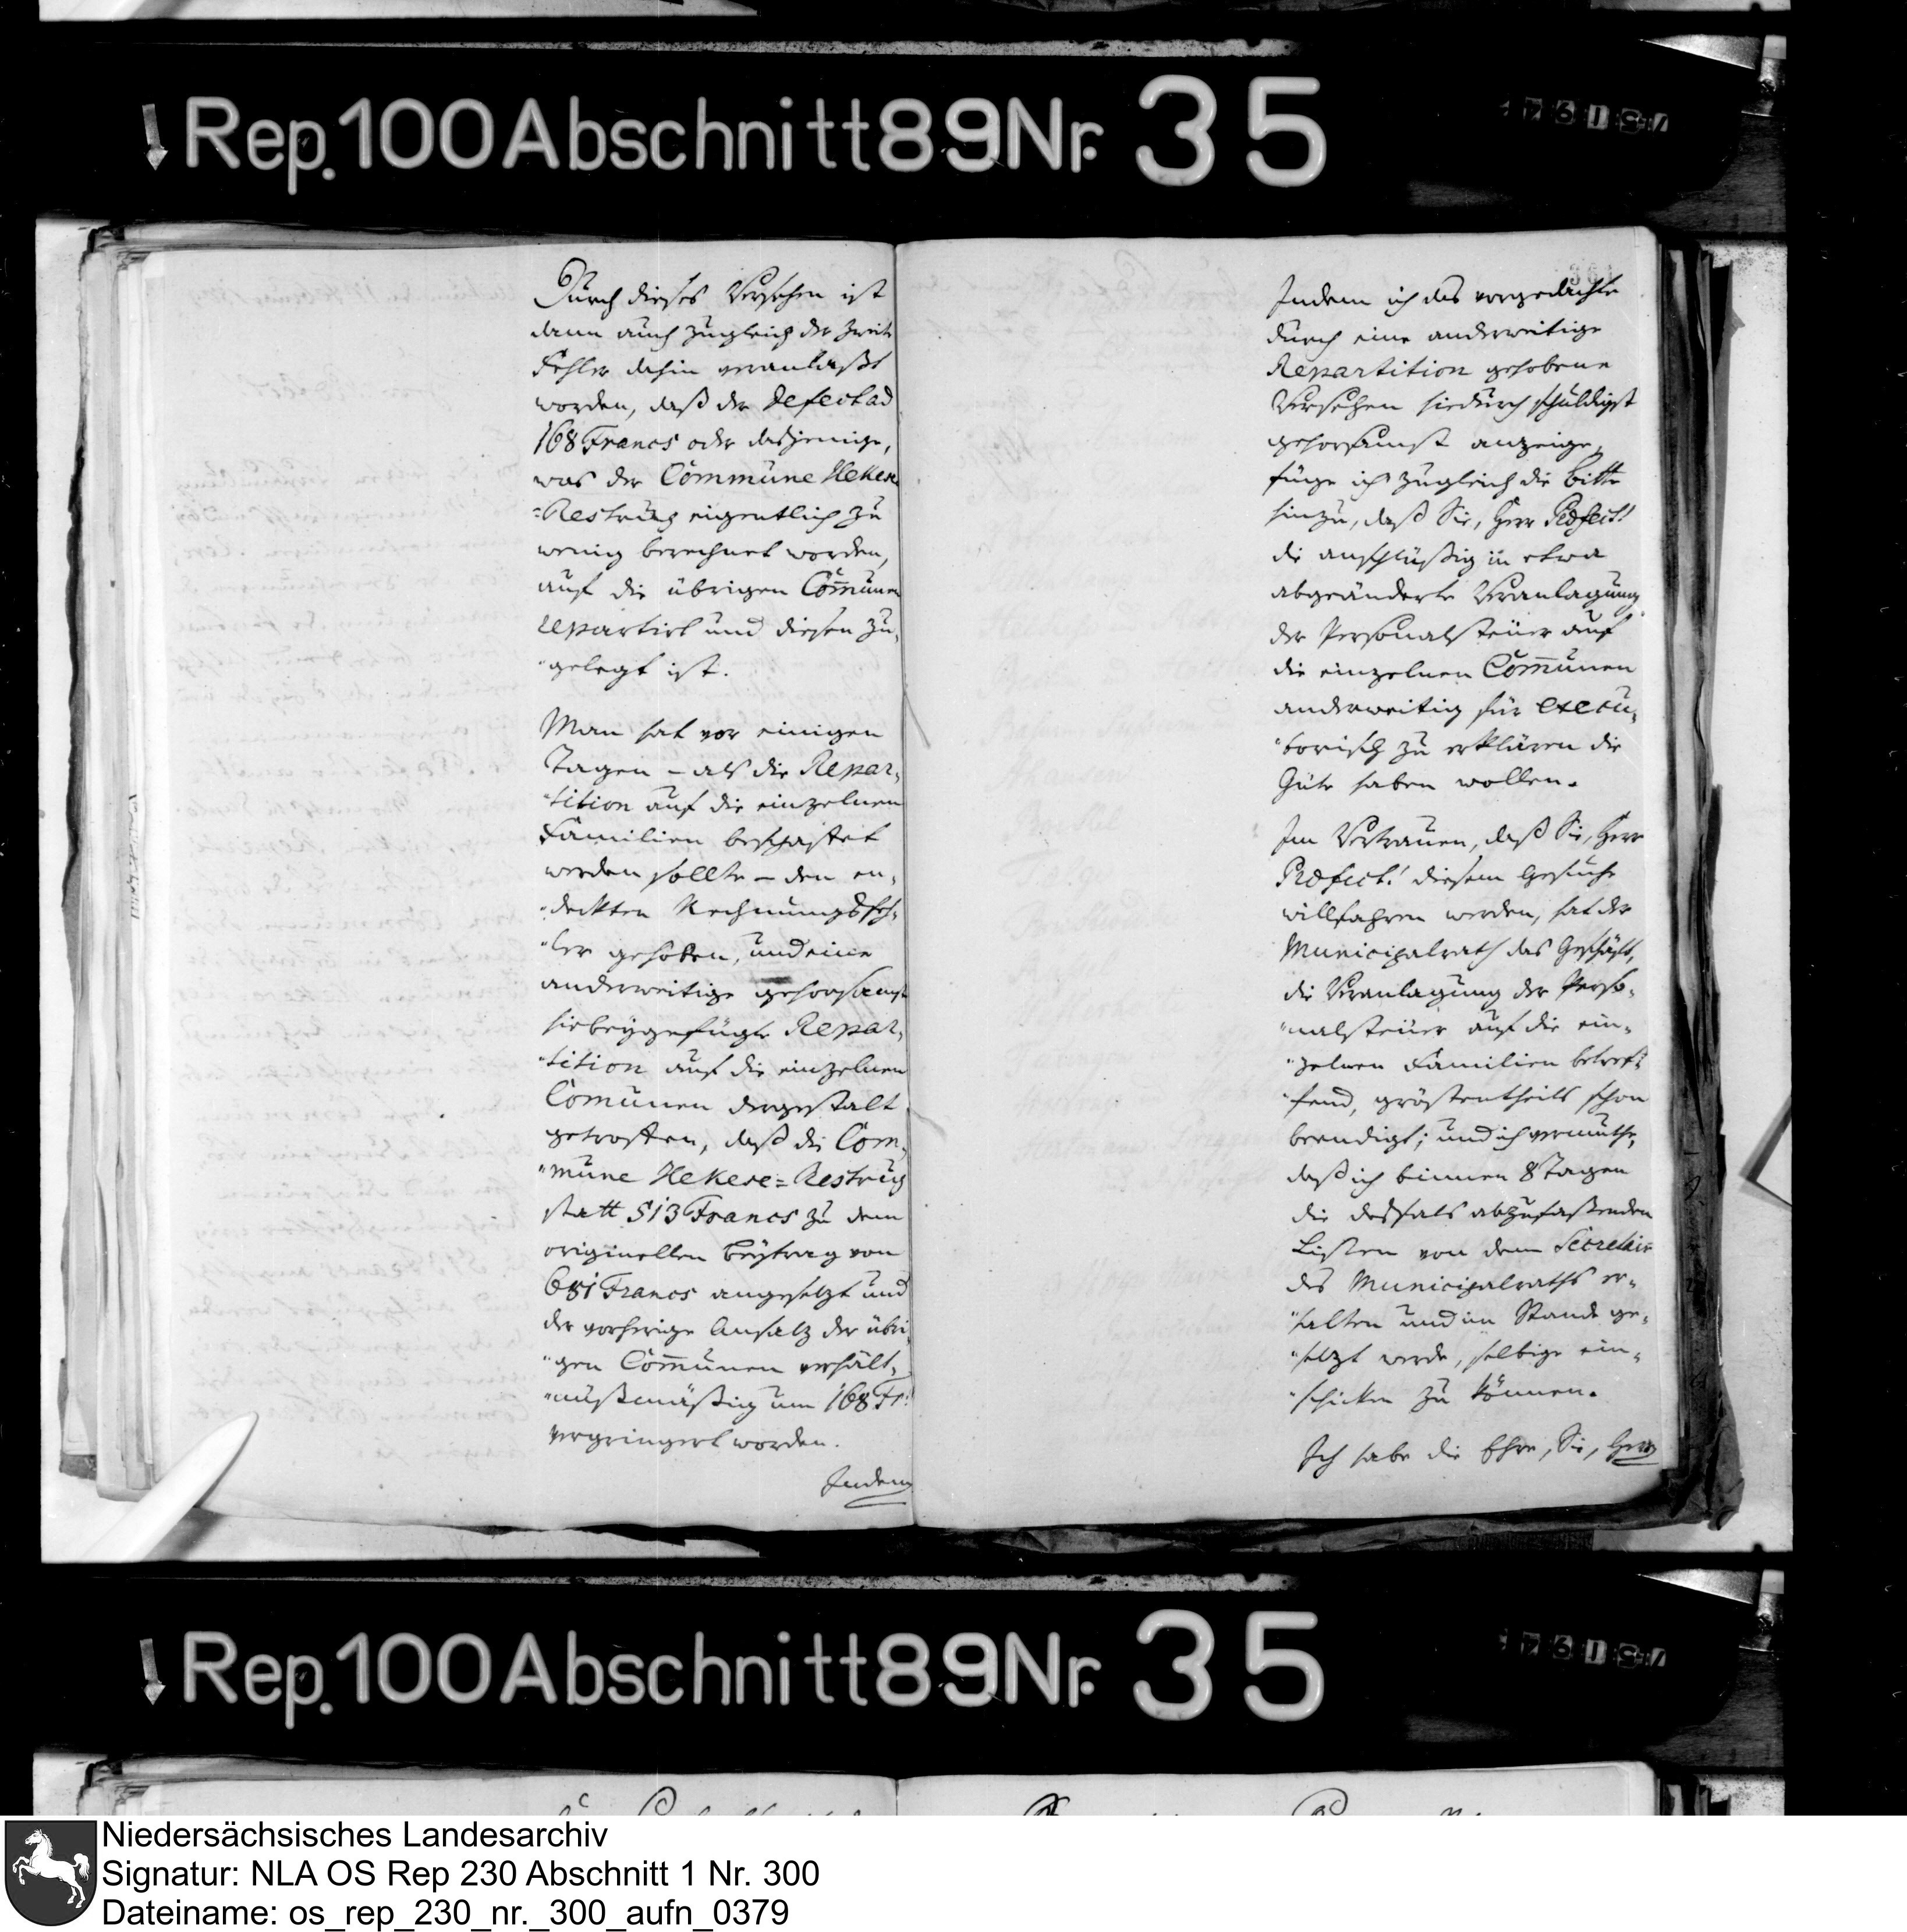 Rep. 100 Abschnitt 89 Nr. 35
Durch dieses Versehen ist
dann auch zugleich der zweite
Fehler dahin veranlaßt
worden, daß der Defect ad
168 Francs oder dasjenige,
was der Commüne Hekese
=Restrüg eigentlich zu
wenig berechnet worden,
auf die übrigen Com̄ünen
repartirt und diesen zu,
"gelegt ist.
Man hat vor einigen
Tagen – als die Repar,
"tition auf die einzelnen
Familien beschaffet
werden sollte – den en,
"deckten Rechnungsfeh,
"ler gehoben, und eine
anderweitige gehorsamst
hiebeygefügte Repar,
"tition auf die einzelnen
Comünen dergestalt
getroffen, daß die Com,
"müne Hekese=Restrüg
statt 513 Francs zu dem
originellen Beytrag von
681 Francs angesetzt und
der vorherige Ansatz der übri
"gen Com̄ünen verhält,
"nißmäßig um 168 Fr.
vergeringert worden.
Indem
361
Indem ich das vorgedachte
durch eine anderweitige
Repartition gehobene
Versehen hiedurch schuldigst
gehorsamst anzeige,
füge ich zugleich die Bitte
hinzu, daß Sie, Herr Präfect!
die anschlüßig in etwa
abgeänderte Veranlagung
der Personalsteuer auf
die einzelnen Com̄ünen
anderweitig für execu,
"torisch zu erklären die
Güte haben wollen.
Im Vertrauen, daß Sie, Herr
Präfect! diesem Gesuche
willfahren werden, hat der
Municipalrath das Geschäft,
die Veranlagung der Perso,
"nalsteuer auf die ein,
"zelnen Familien betref,
"fend, gröstentheils schon
beendigt; und ich vermuthe,
daß ich binnen 8 Tagen
die desfals abzufaßenden
Listen von dem Secretair
des Municipalraths er,
"halten und im Stande ge,
"setzt werde, selbige ein,
"schicken zu können.
Ich habe die Ehre, Sie, Herr
Rep. 100 Abschnitt 89 Nr. 35
Niedersächsisches Landesarchiv
Signatur: NLA OS Rep 230 Abschnitt 1 Nr. 300
Dateiname: os_rep_230_nr._300_aufn_0379